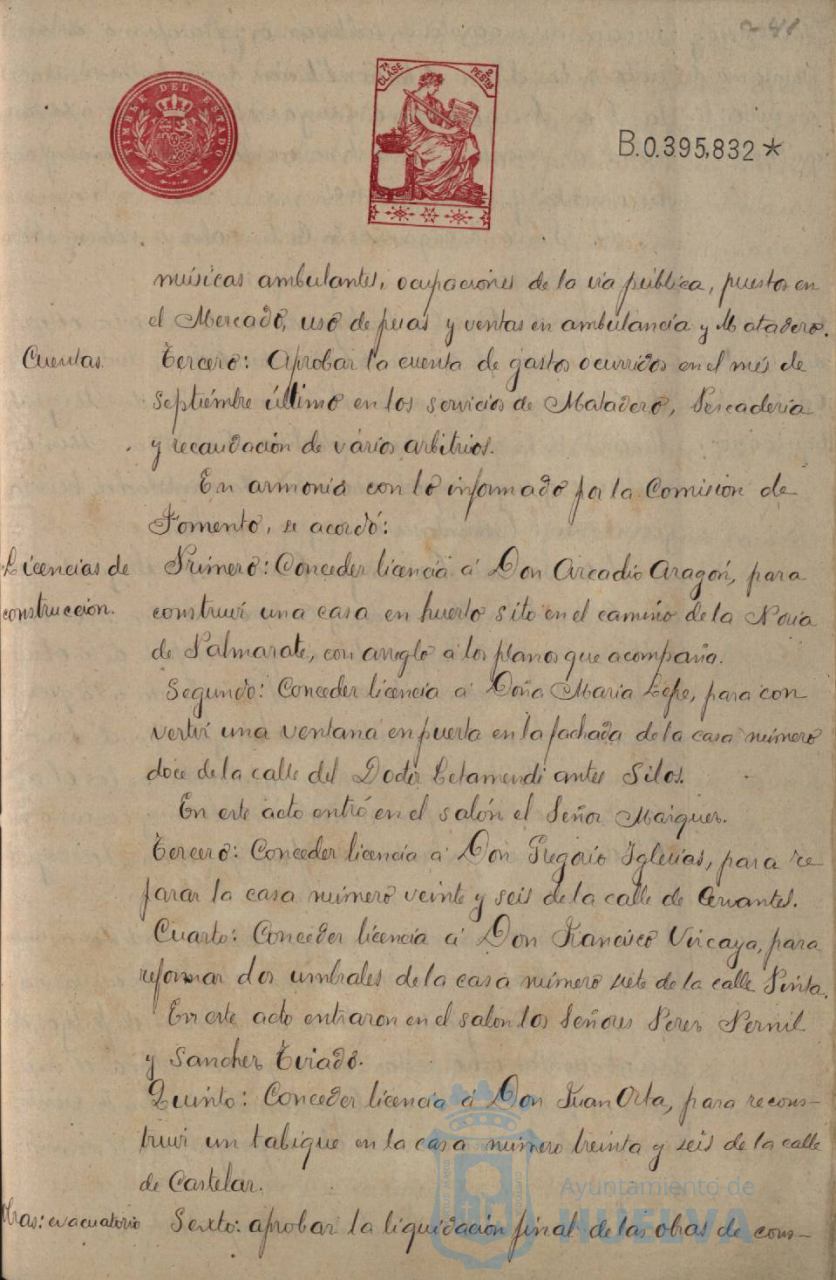 248
TIMBRE DEL ESTADO
7ª CLASE 2 PESTAS
B.0.395,832*
músicas ambulantes, ocupaciones de la via pública, puestos en
el Mercado, uso de pesas y ventas en ambulancia y Matadero.
Cuentas. Tercero: Aprobar la cuenta de gastos ocurridos en el més de
Septiémbre último en los servicios de Matadero, Pescaderia
y recaudación de vários arbitrios.
En armonia con lo informado por la Comision de
Fomento, se acordó:
Licencias de construccion. Primero: Conceder licencia á Don Arcadio Aragón, para
construir una casa en huerto sito en el camino de la Noria
de Palmarate, con arreglo á los planos que acompaña.
Segundo: Conceder licencia á Doña Maria Lepe, para con
vertir una ventana en puerta en la fachada de la casa número
doce de la calle del Doctor Letamendi antes Silos.
En este acto entró en el salón el Señor Maiquez.
Tercero: Conceder licencia á Don Gregorio Iglesias, para re
parar la casa número veinte y seis de la calle de Cervantes.
Cuarto: Conceder licencia á Don Francisco Vizcaya, para
reformar dos umbrales de la casa número siete de la calle Pinta.
En este acto entraron en el salon los Señores Perez Pernil
y Sanchez Tirado.
Quinto: Conceder licencia á Don Juan Orta, para recons-
truir un tabique en la casa número treinta y seis de la calle
de Castelar.
Obras: evacuatorio Sexto: aprobar la liquidación final de las obras de cons-
Ayuntamiento de
HUELVA